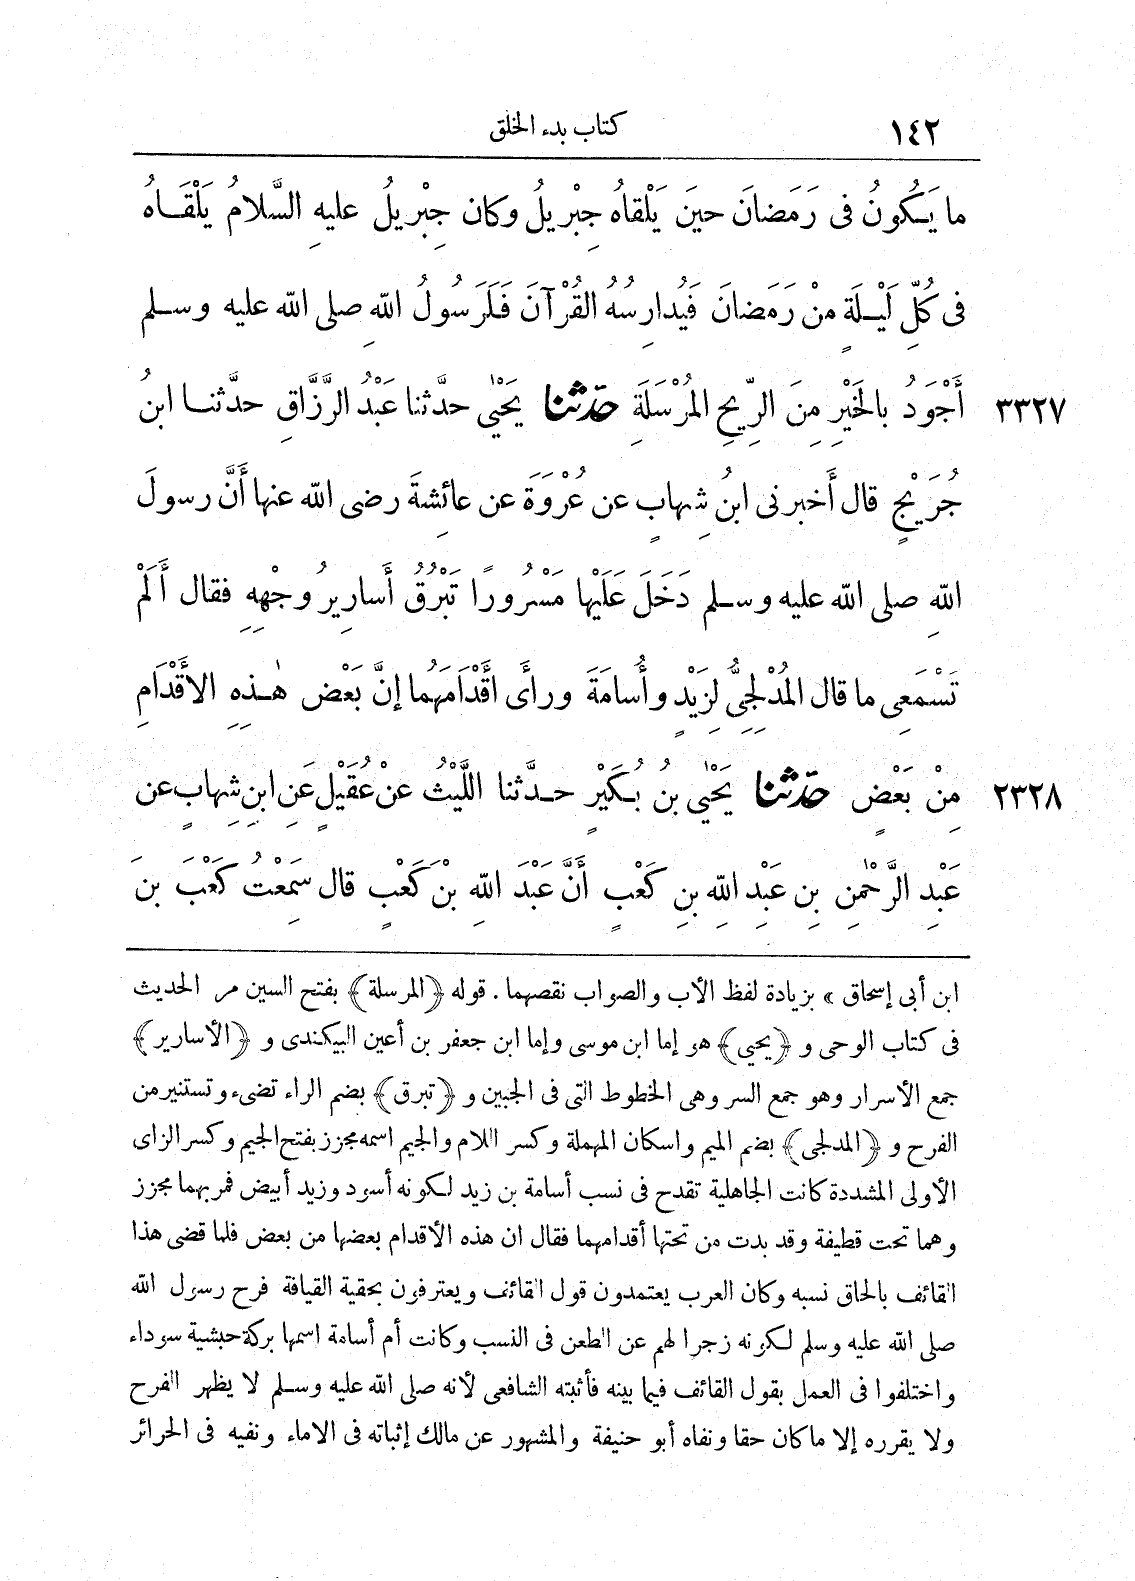 ١٤٢ كتاب بدء الخلق
ما يَكُونُ فى رَمَضانَ حينَ يَلْقاهُ جِبْريلُ وكان جِبْرِيلُ عليهِ السَّلامُ يَلْقَـاهُ
فى كُلِّ لَيْـلَةٍ منْ رَمَضانَ فَيُدارِسُهُ القُرْآنَ فَلَرَسُولُ اللّهِ صلى اللّه عليه وسـلم
٣٣٢٧ أَجْوَدُ بالخَيْرِ مِنَ الرِّيحِ المُرْسَلَةِ حَدَّثنا يَحْيٰى حدَّثنا عَبْدُ الرَّزَّاقِ حدَّثنـا ابنُ
جُرَيْجٍ قال أَخبرنى ابنُ شِهابٍ عن عُرْوَةَ عن عائِشةَ رضى اللّه عنها أَنَّ رسولَ
اللّهِ صلى اللّه عليه وسـلم دَخَلَ عَلَيْها مَسْرُورًا تَبْرُقُ أَسارِيرُ وجْهِهِ فقال أَلَمْ
تَسْمَعِى ما قال المُدْلِجِىُّ لِزَيْدٍ وأُسامَةَ ورأَى أَقْدَامَهُما إنَّ بَعْضَ هٰـذِهِ الأَقْدَامِ
٢٣٢٨ مِنْ بَعْضٍ حَدَّثنا يَحْيٰى بن بُـكَيْرٍ حـدَّثنا اللَّيْثُ عنْ عُقَيْلٍ عَنِ ابنِ شِهابٍ عن
عَبْدِ الرَّحْمٰنِ بنِ عَبْدِ اللّهِ بنِ كَعْبٍ أَنَّ عَبْدَ اللّهِ بْنَ كَعْبٍ قال سَمِعْتُ كَعْبَ بنَ
ابن أبى إسحاق » بزيادة لفظ الأب والصواب نقصهما . قوله ﴿المرسلة﴾ بفتح السين مر الحديث
فى كتاب الوحى و ﴿يحيى﴾ هو إما ابن موسى وإما ابن جعفر بن أعين البيكندى و ﴿الأسارير﴾
جمع الأسرار وهو جمع السر وهى الخطوط التى فى الجبين و ﴿تبرق﴾ بضم الراء تضىء وتستنير من
الفرح و ﴿المدلجى﴾ بضم الميم واسكان المهملة وكسر اللام والجيم اسمه مجزز بفتح الجيم وكسر الزاى
الأولى المشددة كانت الجاهلية تقدح فى نسب أسامة بن زيد لكونه أسود وزيد أبيض فمر بهما مجزز
وهما تحت قطيفة وقد بدت من تحتها أقدامهما فقال ان هذه الأقدام بعضها من بعض فلما قضى هذا
القائف بالحاق نسبه وكان العرب يعتمدون قول القائف ويعترفون بحقية القيافة فرح رسول اللّه
صلى اللّه عليه وسلم لكونه زجرا لهم عن الطعن فى النسب وكانت أم أسامة اسمها بركة حبشية سوداء
واختلفوا فى العمل بقول القائف فيما بينه فأثبته الشافعى لأنه صلى اللّه عليه وسـلم لا يظهر الفرح
ولا يقرره إلا ما كان حقا ونفاه أبو حنيفة والمشهور عن مالك إثباته فى الاماء ونفيه فى الحرائر